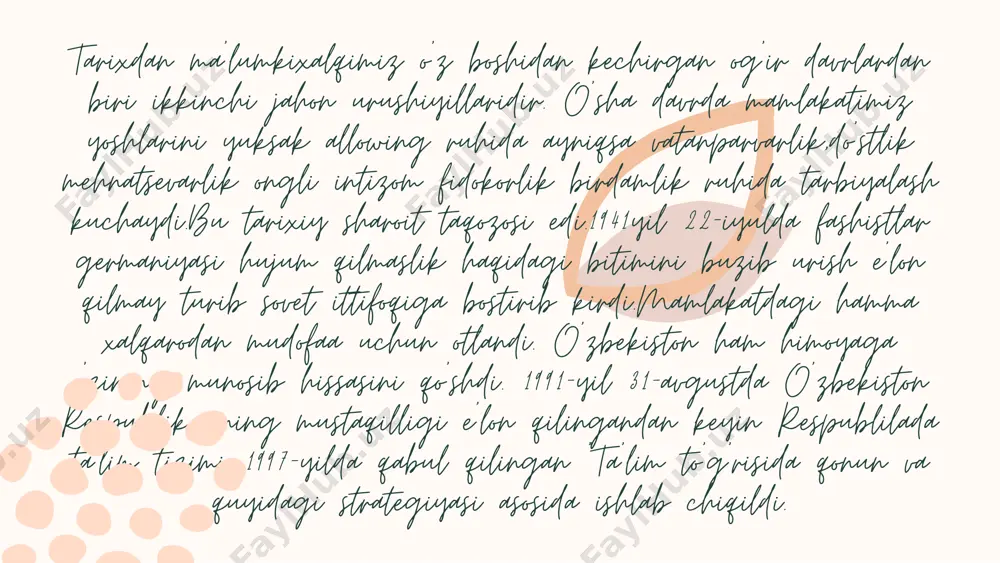 Tarixdan ma'lumkixalqimiz o'z boshidan kechirgan og'ir davrlardan
biri ikkinchi jahon urushiyillaridir. O'sha davrda mamlakatimiz
yoshlarini yuksak allowing ruhida ayniqsa vatanparvarlik,do'stlik
mehnatsevarlik ongli intizom fidokorlik birdamlik ruhida tarbiyalash
kuchaydi.Bu tarixiy sharoit taqozosi edi.1941yil 22-iyulda fashistlar
germaniyasi hujum qilmaslik haqidagi bitimini buzib urish e'lon
qilmay turib sovet ittifoqiga bostirib kirdi.Mamlakatdagi hamma
xalqarodan mudofaa uchun otlandi. O'zbekiston ham himoyaga
munosib hissasini qo'shdi. 1991-yil 31-avgustda O'zbekiston
mustaqilligi e'lon qilingandan keyin Respublilada
ta'lim 1997-yilda qabul qilingan "Ta'lim to'g'risida qonun va
quyidagi strategiyasi asosida ishlab chiqildi.
FaylHub.uz
FaylHub.uz
FaylHub.uz
FaylHub.uz
FaylHub.uz